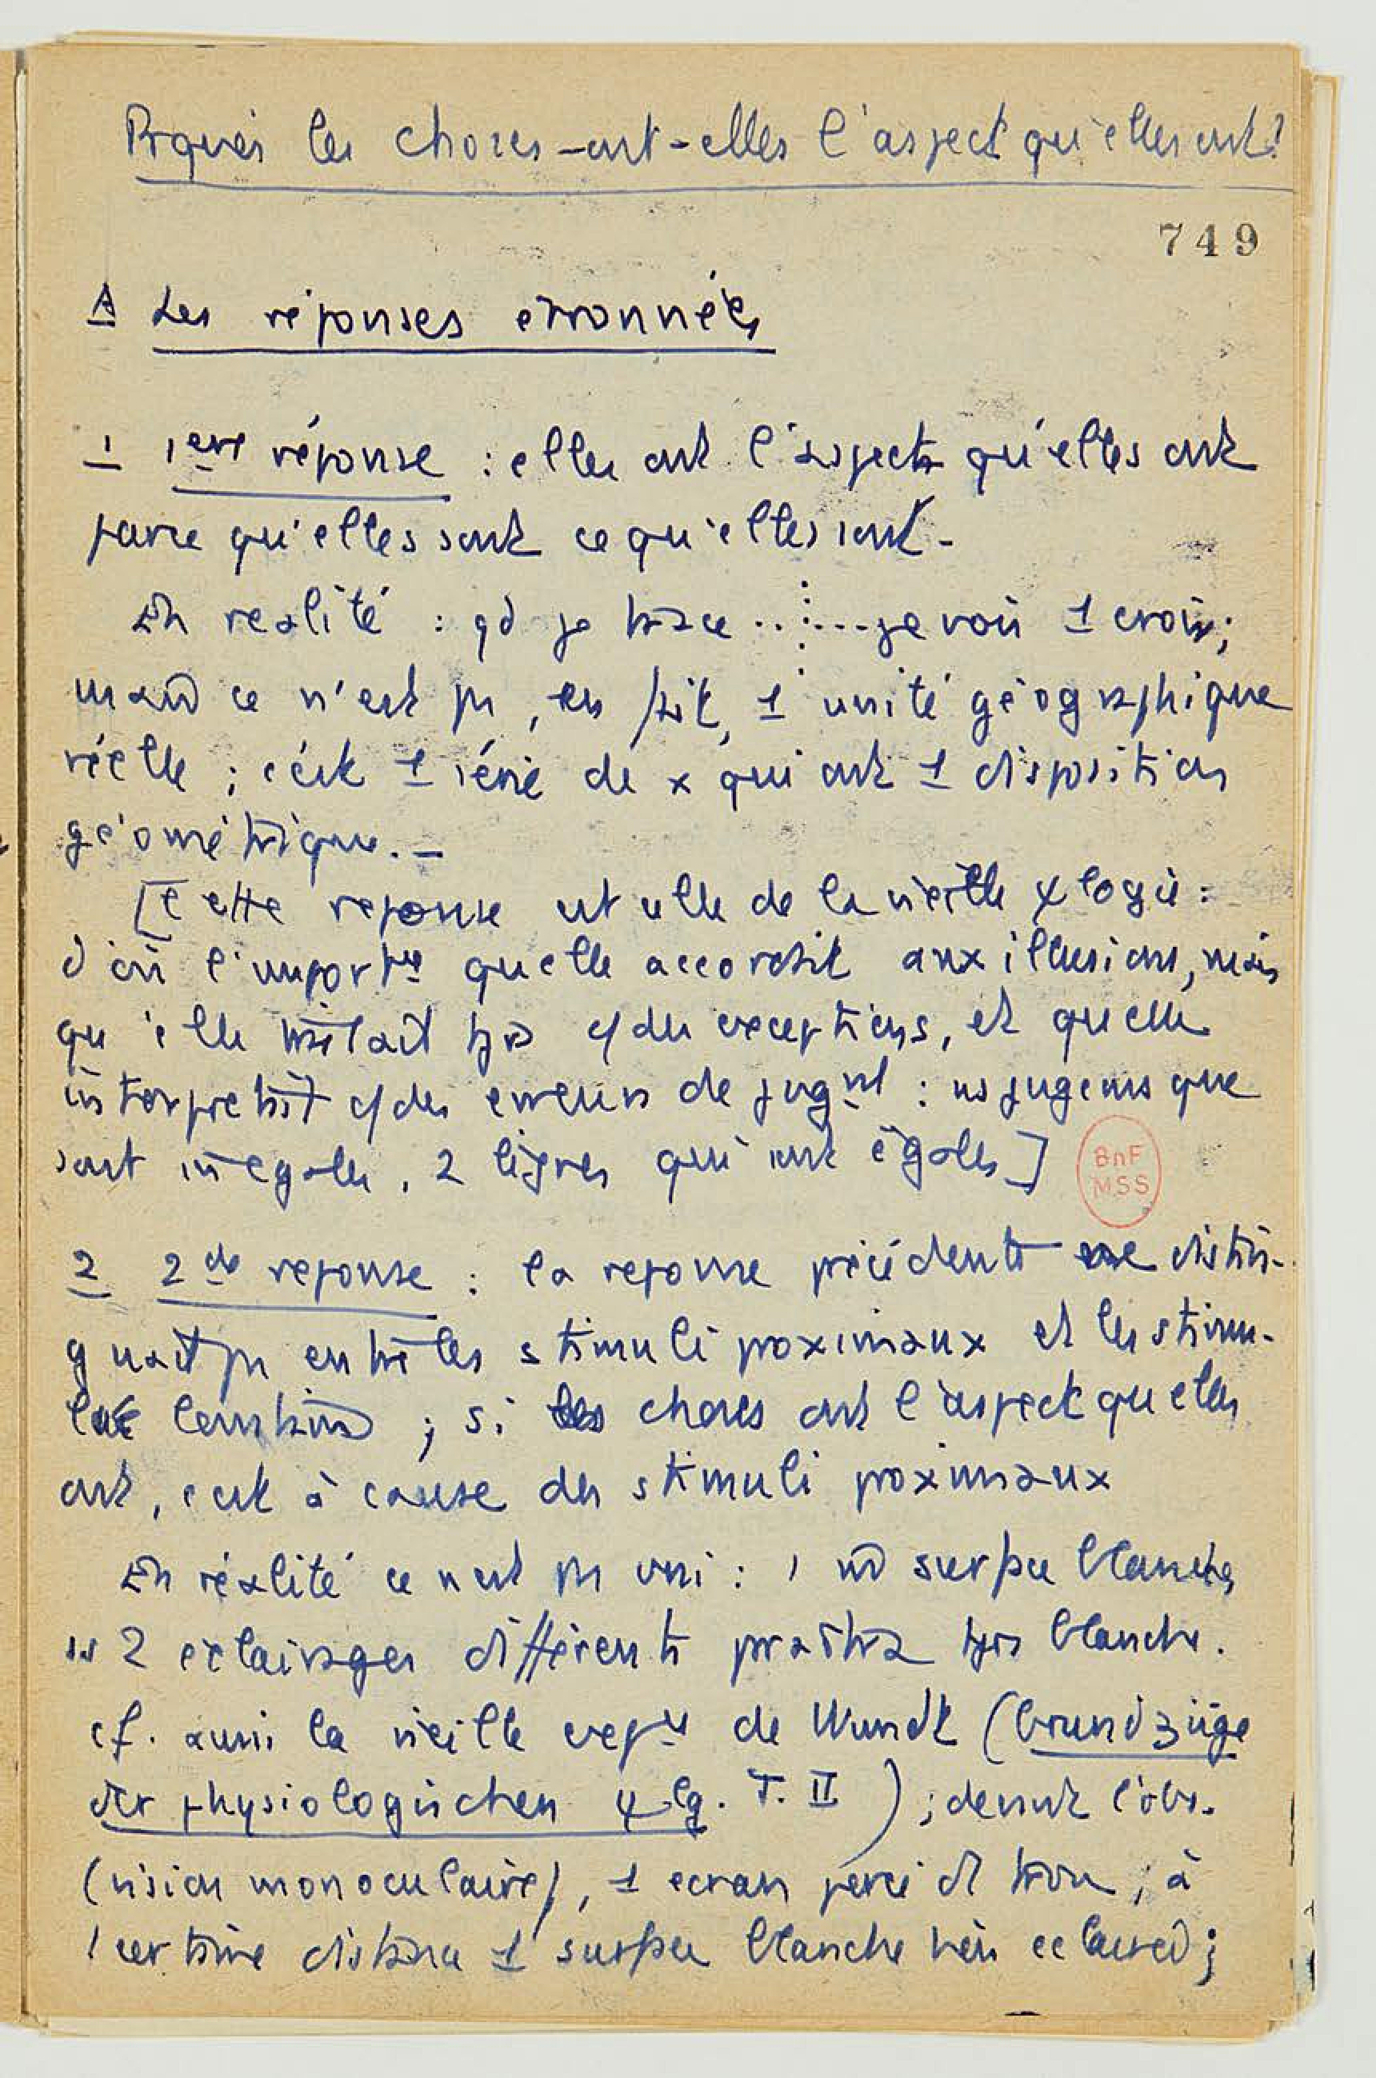 Pquoi les choses-ont-elles l'aspect qu'elles ont?
749
A Les réponses erronnées
1 1ere réponse : elles ont l'aspect qu'elles ont
parce qu'elles sont ce qu'elles sont.
En realité : qd je trace ..⋮... je vois 1 croix;
mais ce n'est pas, en fait, 1 unité géographique
réelle ; c'est 1 série de x qui ont 1 disposition
géométrique. _
[Cette reponse est celle de la vieille ψlogie :
d'où l'importce qu'elle accordait aux illusions, mais
qu'elle traitait tjrs c/ des exceptions, et quelle
interpretait c/ des erreurs de jugmt : ns jugeons que
sont inegales, 2 lignes qui sont égales]
BnF
MSS
2 2de reponse : la reponse précédente ne distin-
guait pas entre les stimuli proximaux et les stimu-
li lointains ; si les choses ont l'aspect quelles
ont, c'est à cause des stimuli proximaux
En réalité ce n'est pas vrai : 1 m surface blanche
ss 2 éclairages différents paraîtra tjrs blanche.
cf. aussi la vieille expce de Wundt (Grundzüge
der physiologischen ψlg. T. II) ; devant l'obs.
(vision monoculaire), 1 ecran percé d1 trou ; à
1 certaine distance 1 surface blanche bien eclairée ;